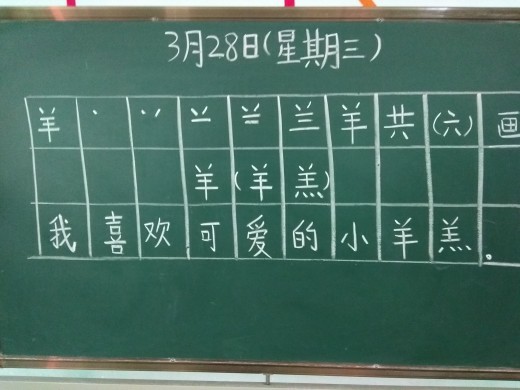 3月28日(星期三)
羊 丶 丷 䒑 兰 羊 共 (六) 画
羊(羊羔)
我喜欢可爱的小羊羔。